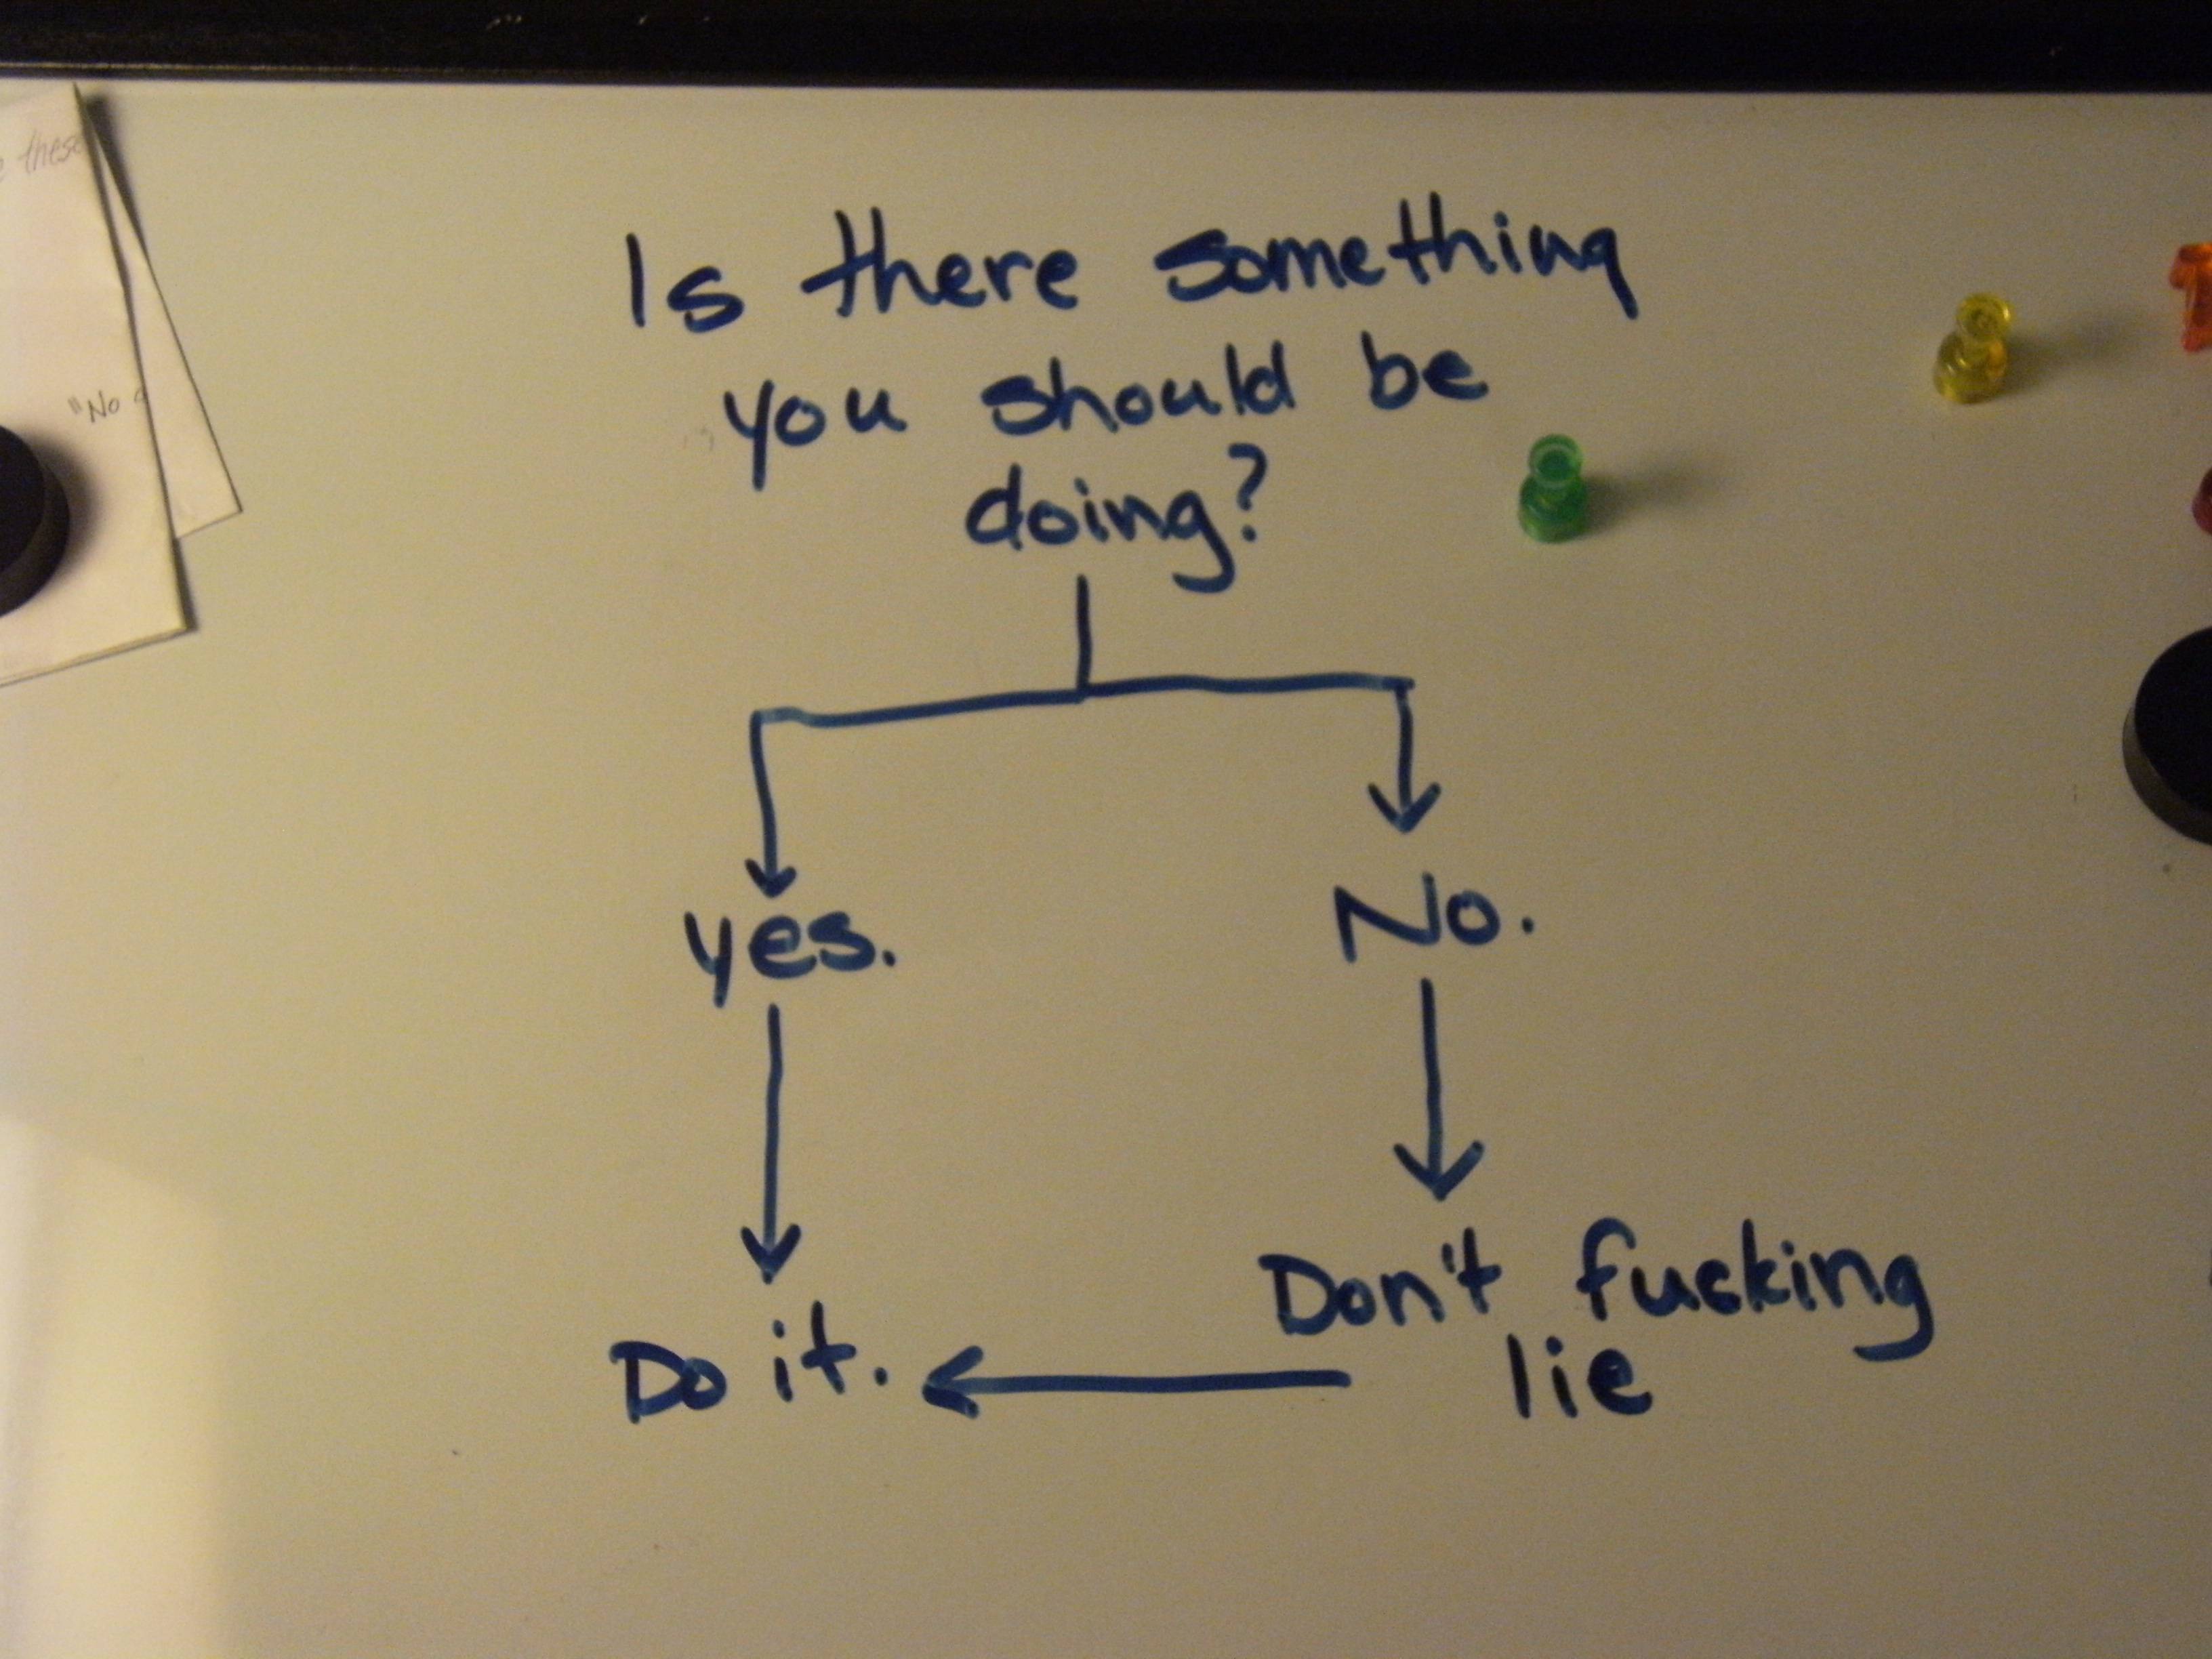 these
"No
Is there something
you should be
doing?
yes.
No.
Do it.
Don't fucking
lie